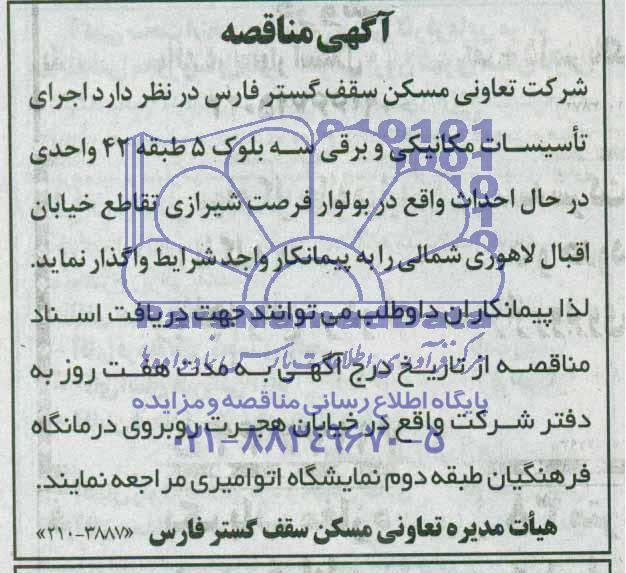 آگهی مناقصه
شرکت تعاونی مسکن سقف گستر فارس در نظر دارد اجرای
تأسیسات مکانیکی و برقی سه بلوک ۵ طبقه ۴۲ واحدی
در حال احداث واقع در بولوار فرصت شیرازی تقاطع خیابان
اقبال لاهوری شمالی را به پیمانکار واجد شرایط واگذار نماید.
لذا پیمانکاران داوطلب می توانند جهت دریافت اسناد
ParsNamadData
مناقصه از تاریخ درج آگهی به مدت هفت روز به
پایگاه اطلاع رسانی مناقصه و مزایده
دفتر شرکت واقع در خیابان هجرت روبروی درمانگاه
۰۲۱-۸۸۳۴۹۶۷۰-۵
فرهنگیان طبقه دوم نمایشگاه اتوامیری مراجعه نمایند.
هیأت مدیره تعاونی مسکن سقف گستر فارس «۳۸۸۱۷-۲۱۰»